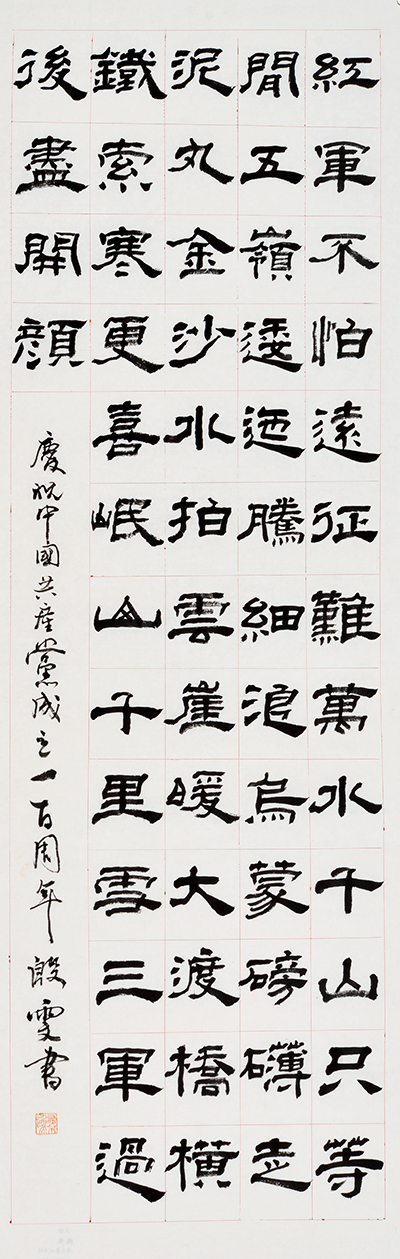 紅軍不怕遠征難萬水千山只等
閒五嶺逶迤騰細浪烏蒙磅礴走
泥丸金沙水拍雲崖暖大渡橋橫
鐵索寒更喜岷山千里雪三軍過
後盡開顏
慶祝中國共產黨成立一百周年 殷雯書